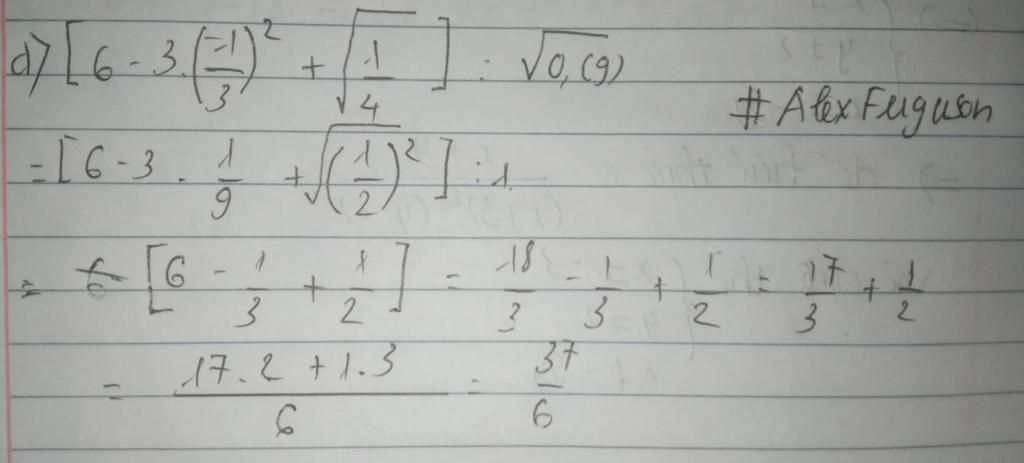 d) [6 - 3.(-1/3)² + √(1/4)] : √0,(9)
# AlexFuguson
= [6 - 3 . 1/9 + √(1/2)²] : 1.
= 6 [6 - 1/3 + 1/2] = 18/3 - 1/3 + 1/2 = 17/3 + 1/2
= (17.2 + 1.3)/6 = 37/6